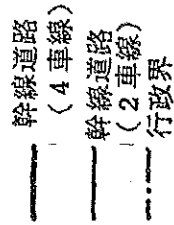 幹線道路
(4車線)
幹線道路
(2車線)
行政界